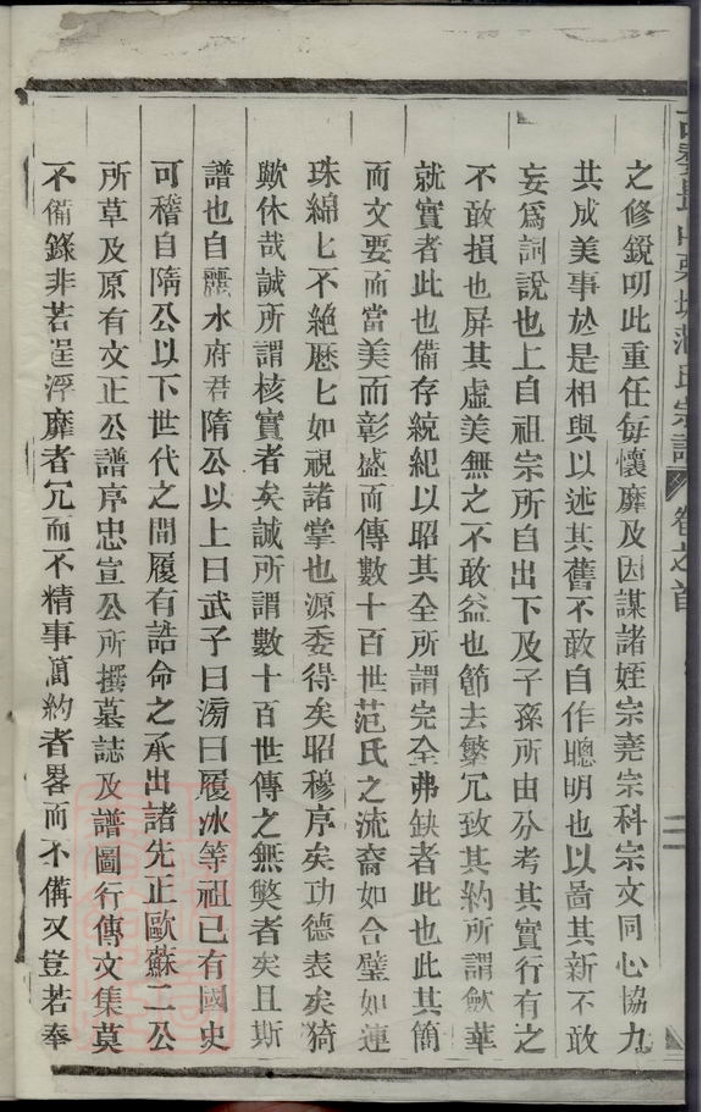 之修銳叨此重任每懷靡及因謀諸姪宗堯宗科宗文同心協九
共成美事於是相與以述其舊不敢自作聰明也以啚其新不敢
妄爲詞說也上自祖宗所自出下及子孫所由分考其實行有之
不敢損也屏其虛美無之不敢益也節去繁冗致其約所謂斂華
就實者此也備存統紀以昭其全所謂完全弗缺者此也此其簡
而文要而當美而彰盛而傳數十百世范氏之流裔如合璧如連
珠綿匕不絶歷匕如視諸掌也源委得矣昭穆序矣功德表矣猗
歟休哉誠所謂核實者矣誠所謂數十百世傳之無斁者矣且斯
譜也自麗水府君隋公以上曰武子曰滂曰履冰等祖已有國史
可稽自隋公以下世代之間履有誥命之承出諸先正歐蘇二公
所草及原有文正公譜序忠宣公所撰墓誌及譜圖行傳文集莫
不備錄非若逞浮靡者冗而不精事簡約者畧而不備又豈若奉
范氏宗譜 卷之首 二